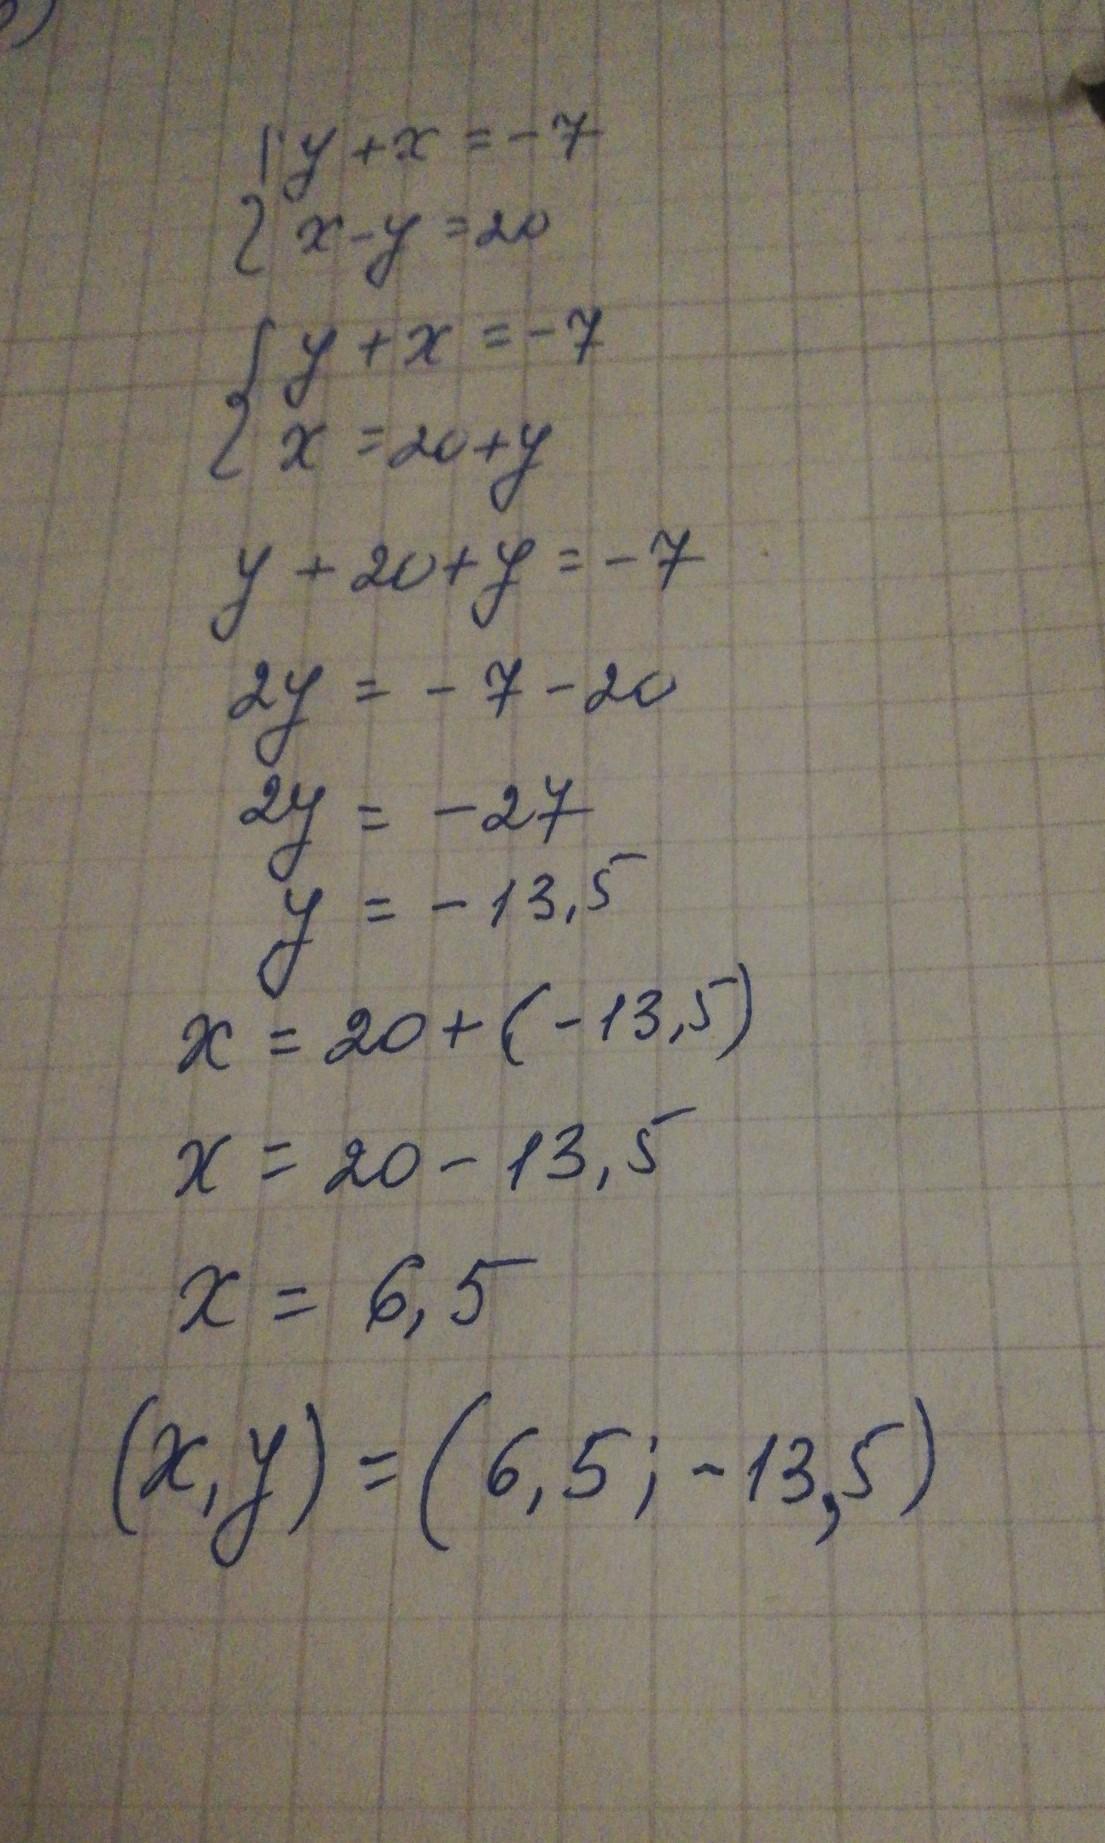 )
{ y + x = -7
{ x - y = 20
{ y + x = -7
{ x = 20 + y
y + 20 + y = -7
2y = -7 - 20
2y = -27
y = -13,5
x = 20 + (-13,5)
x = 20 - 13,5
x = 6,5
(x, y) = (6,5; -13,5)